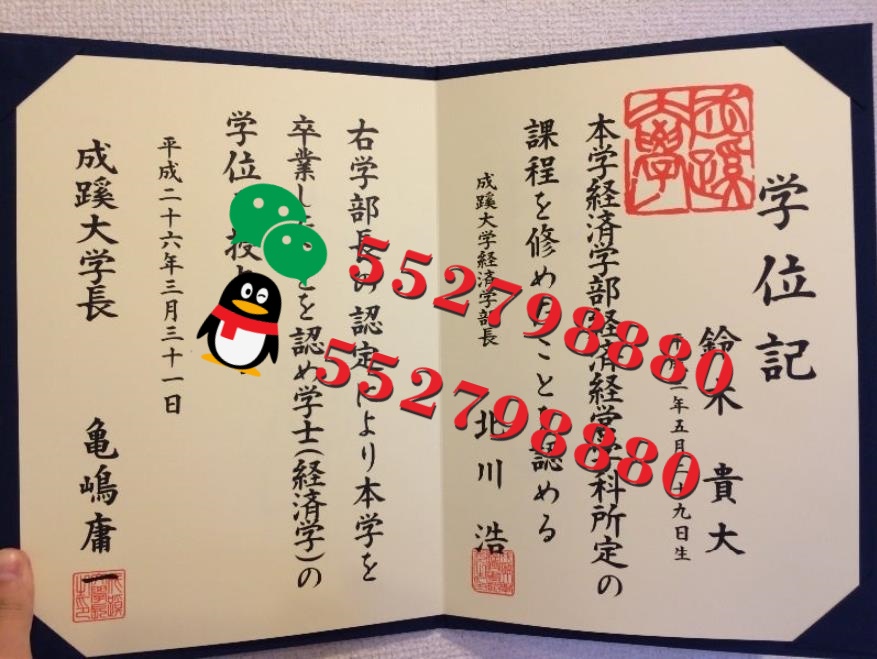 学位記
鈴木 貴大
年五月二十九日生
本学経済学部経済経営学科所定の
課程を修めたことを認める
成蹊大学経済学部長
北川 浩
右学部長の認定により本学を
卒業したことを認め学士(経済学)の
学位
平成二十六年三月三十一日
成蹊大学長
亀嶋庸一
成蹊大學
55279880
55279880